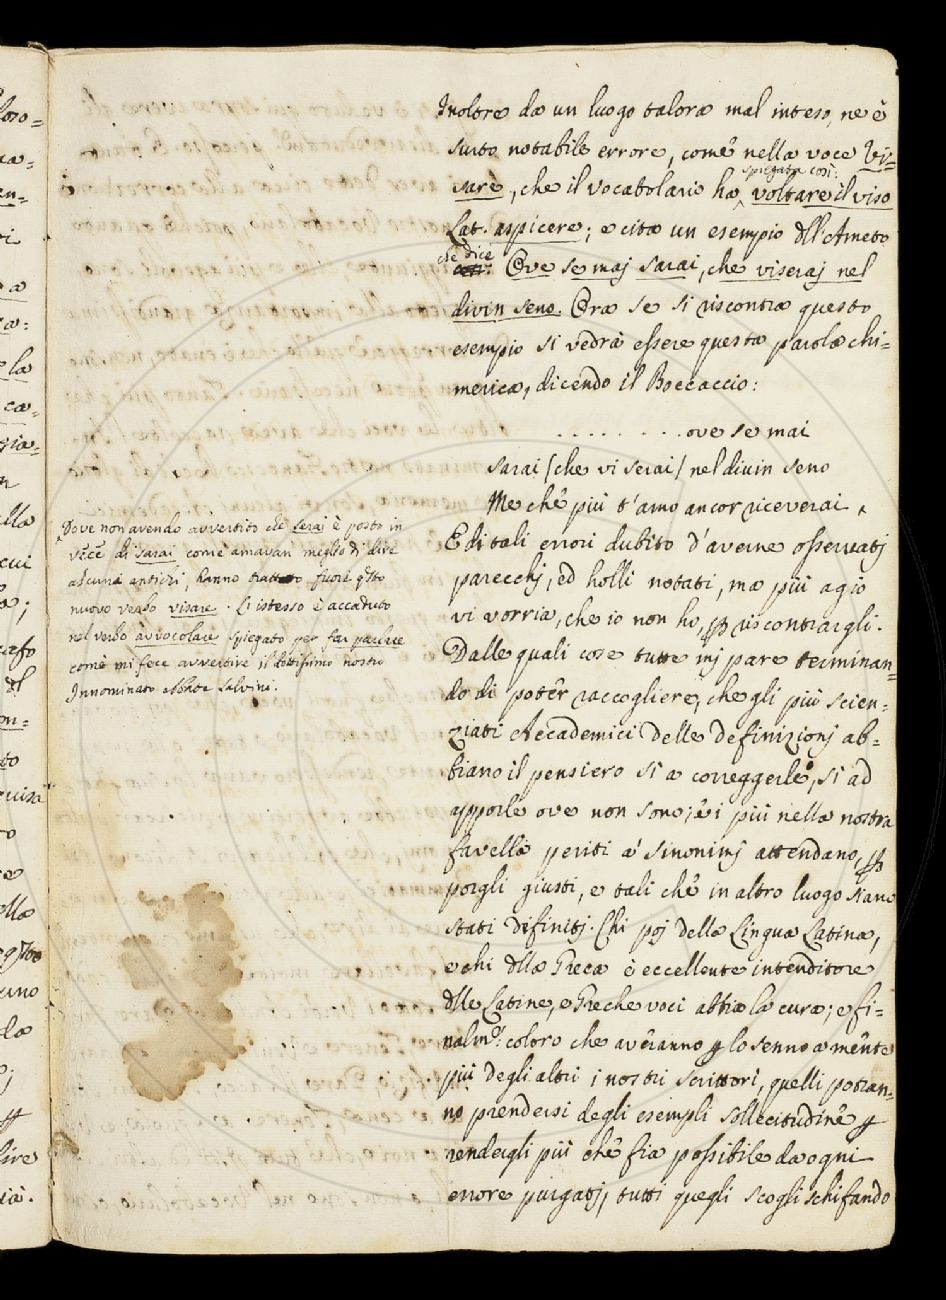 Inoltre da un luogo talora mal inteso, ne è
surto notabile errore, come nella voce Vi-
sare, che il vocabolario ha spiegata così: voltare il viso
Lat. aspicere; e cita un esempio dll'Ameto
che dice Ove se maj sarai, che viseraj nel
divin seno. Ora se si riscontra questo
esempio si vedrà essere questa parola chi-
merica, dicendo il Boccaccio:
. . . . . . . . ove se mai
sarai (che vi serai) nel divin seno
Me che più t'amo ancor riceverai
E di tali errori dubito d'averne osservatj
parecchj, ed holli notati, ma più agio
vi vorria, che io non ho, p riscontrargli.
Dalle quali cose tutte mj pare terminan-
do di potér raccogliere, che gli più scien-
ziati Accademici delle definizionj ab-
biano il pensiero sì a correggerle, sì ad
apporle ove non sono; e i più nella nostra
favella periti a' sinonimj attendano, p
porgli giusti, e tali che in altro luogo siano
stati difinitj. Chi poj della Lingua Latina,
e chi dlla Greca è eccellente intenditore
dlle Latine, e Greche voci abbia la cura; e fi-
nalmte: coloro che averanno p lo senno a mente
più degli altri i nostri scrittori, quelli potran-
no prendersi degli esempli sollecitudine p
rendergli più che fia possibile da ogni
errore purgatj, tutti quegli scogli schifando
Dove non avendo avvertito che serai è posto in
vece di sarai come amavan meglio di dire
alcuni antichi, hanno trattato fuori qsto
nuovo verbo visare. Lo istesso è accaduto
nel verbo avvocolare spiegato per far parlare
come mi fece avvertire il dottissimo nostro
Innominato Abate Salvini.